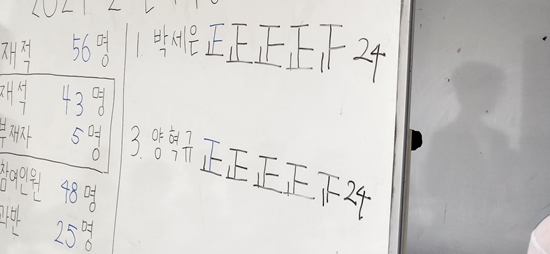 재적 56명
재석 43명
부재자 5명
참여인원 48명
과반 25명
1. 박세은 正正正正㱏 24
3. 양혁규 正正正正㱏 24